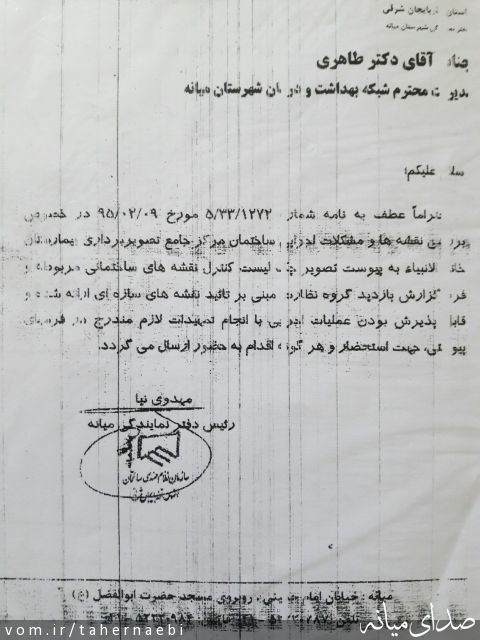 آذربایجان شرقی
شهرستان میانه
آقای دکتر طاهری
محترم شبکه بهداشت و درمان شهرستان میانه
علیکم؛
عطف به نامه شماره ۵/۳۳/۱۲۷۲ مورخ ۹۵/۰۲/۰۹ در خصوص
نقشه ها و مشکلات اجرایی ساختمان مرکز جامع تصویربرداری بیمارستان
الانبیاء به پیوست تصویر چک لیست کنترل نقشه های ساختمانی مربوطه و
گزارش بازدید گروه نظارت مبنی بر تائید نقشه های سازه ای ارائه شده و
پذیرش بودن عملیات اجرایی با انجام تمهیدات لازم مندرج در فرمهای
جهت استحضار و هر گونه اقدام به حضور ارسال می گردد.
مهدوی نیا
رئیس دفتر نمایندگی میانه
سازمان نظام مهندسی ساختمان
میانه: خیابان امام خمینی، روبروی مسجد حضرت ابوالفضل (ع)
صدای میانه
vom.ir/tahernaebi